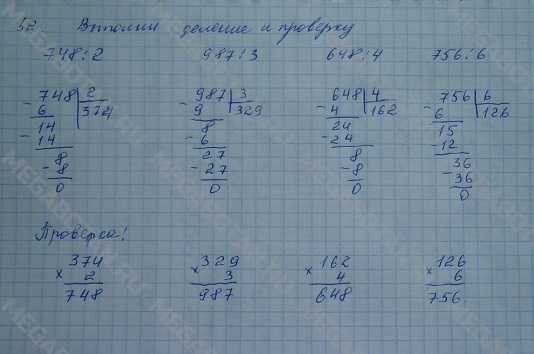 52. Выполни деление и проверку
748:2 987:3 648:4 756:6
- 748 2 - 987 3 - 648 4 - 756 6
6 374 9 329 4 162 6 126
14 8 24 15
- 14 - 6 - 24 - 12
8 27 8 36
- 8 - 27 - 8 - 36
0 0 0 0
Проверка!
374 329 162 126
× 2 × 3 × 4 × 6
748 987 648 756